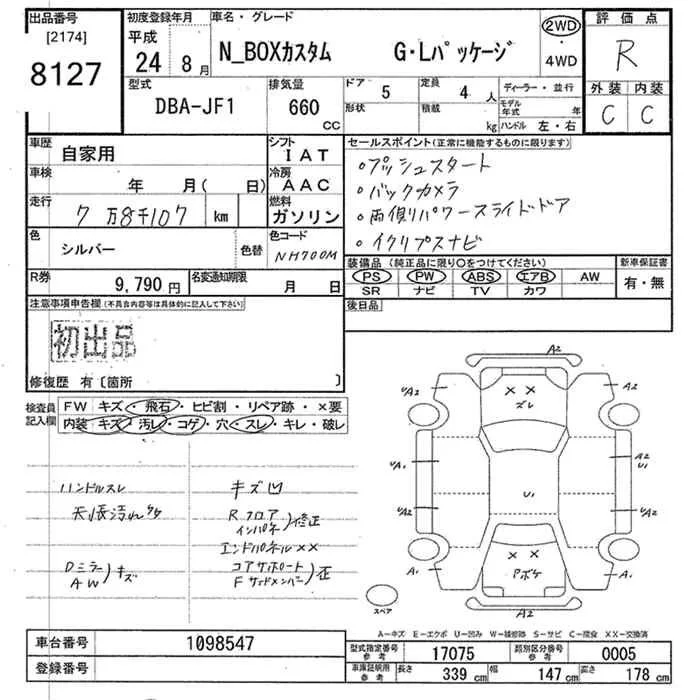 出品番号 初度登録年月 車名・グレード 評価点
[2174] 平成
8127 24 8月 N_BOXカスタム G・Lパッケージ 2WD・4WD R
型式 排気量 ドア 5 定員 4人 ディーラー・並行 外装 内装
DBA-JF1 660 CC 形状 積載 kg モデル年式 年 C C
ハンドル 左・右
車歴 自家用 シフト IAT セールスポイント(正常に機能するものに限ります)
車検 年 月( 日) 冷房 AAC 。プッシュスタート
走行 7万8千107 km 燃料 ガソリン 。バックカメラ
。両側パワースライドドア
色 シルバー 色替 色コード NH700M 。イクリプスナビ
R券 9,790円 名変通知期限 月 日 装備品(純正品に限り○をつけてください) 新車保証書
PS PW ABS エアB AW 有・無
SR ナビ TV カワ
注意事項申告欄(不具合内容等は具体的に記入して下さい) 後日品
初出品
修復歴 有〔箇所 〕
検査員記入欄 FW キズ・飛石・ヒビ割・リペア跡・×要
内装・キズ・汚レ・コゲ・穴・スレ・キレ・破レ
ハンドルスレ キズ凹
天張汚れ多 Rフロア インパネ)修正
エンドパネル××
Dミラー AW)キズ コアサポート Fサイドメンバー)歪
A2
U/A2 ×× A2
ズレ
A1 A2
U1
U1
U/A2 A2
××
A1 Pボケ A1
A2
スペア
A-キズ E-エクボ U-凹み W-補修跡 S-サビ C-腐食 XX-交換済
車台番号 1098547 型式指定番号 参考 17075 類別区分番号 参考 0005
登録番号 車庫証明用 参考 長さ 339cm 幅 147cm 高さ 178cm